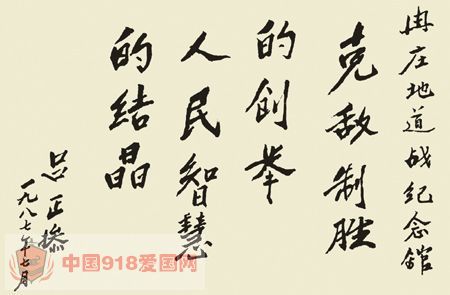 冉庄地道战纪念馆
克敌制胜
的创举
人民智慧
的结晶
吕正操
一九八七年七月
中国918爱国网